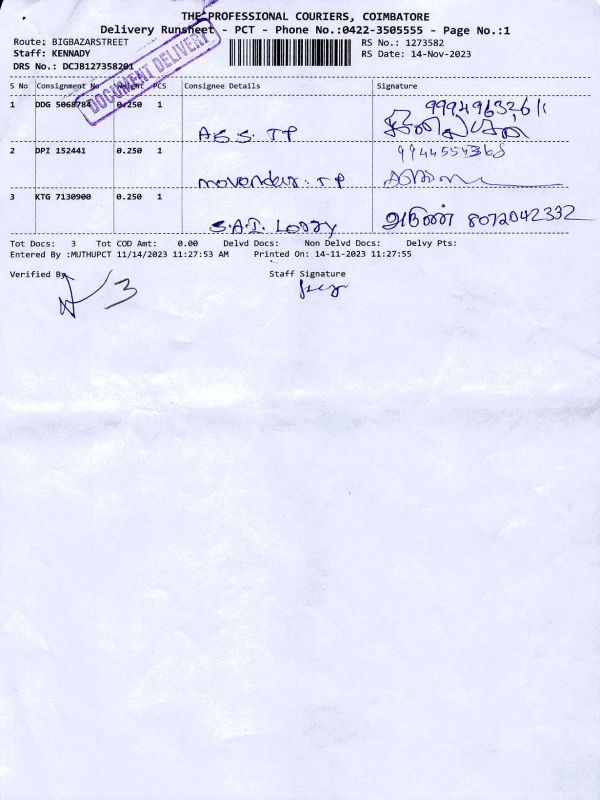 THE PROFESSIONAL COURIERS, COIMBATORE
Delivery Runsheet - PCT - Phone No.:0422-3505555 - Page No.:1
Route: BIGBAZARSTREET RS No.: 1273582
Staff: KENNADY RS Date: 14-Nov-2023
DRS No.: DCJB127358201
DOCUMENT DELIVERY
S No Consignment No Weight PCS Consignee Details Signature
1 DDG 5068784 0.250 1 9994963261
A.S.S. TP
2 DPI 152441 0.250 1 9944554368
TP
3 KTG 7130900 0.250 1 அருண் 8072042332
S.A.I. Lorry
Tot Docs: 3 Tot COD Amt: 0.00 Delvd Docs: Non Delvd Docs: Delvy Pts:
Entered By :MUTHUPCT 11/14/2023 11:27:53 AM Printed On: 14-11-2023 11:27:55
Verified By Staff Signature
3